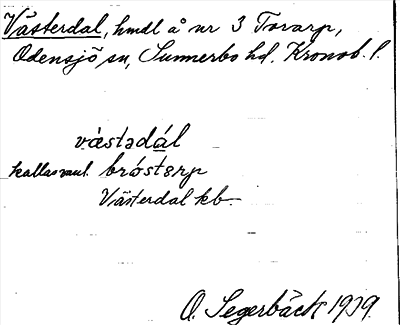 Västerdal, hmdl å nr 3 Torarp,
Odensjö sn, Sunnerbo hd, Kronob. l.
væ̀stədál
kallas vanl. bróstərp
Västerdal kb.
O. Segerbäck 1919.